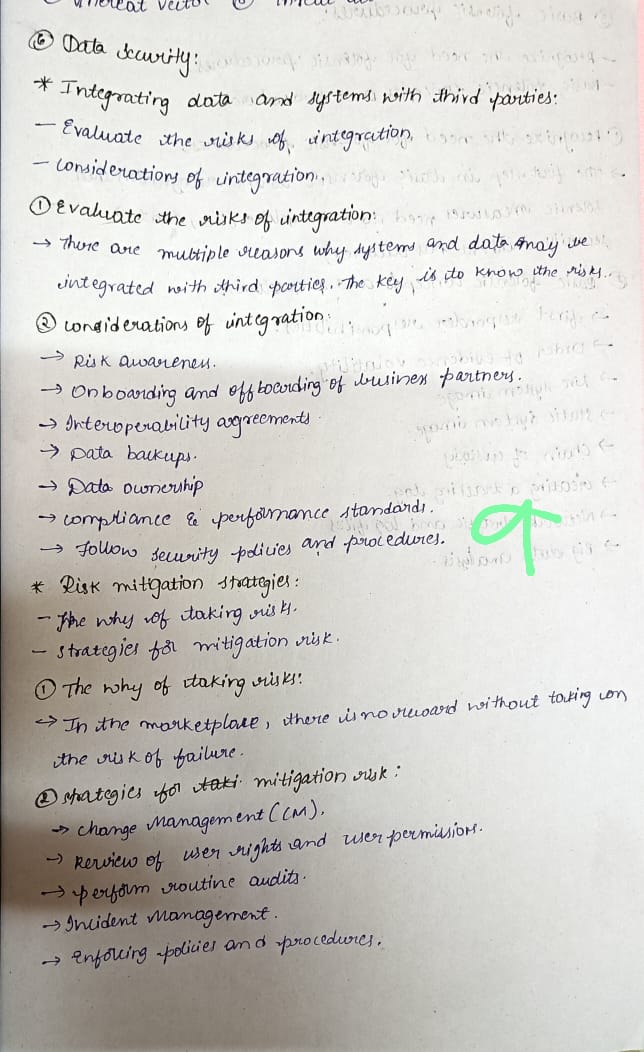 Threat vector
⑥ Data Security:
* Integrating data and systems with third parties:
— Evaluate the risks of integration.
— Considerations of integration.
① Evaluate the risks of integration:
→ There are multiple reasons why systems and data may be
integrated with third parties. The key is to know the risks.
② Considerations of integration:
→ Risk awareness.
→ Onboarding and offboarding of business partners.
→ Interoperability agreements.
→ Data backups.
→ Data ownership
→ compliance & performance standards.
→ follow security policies and procedures.
* Risk mitgation strategies:
— The why of taking risks.
— strategies for mitigation risk.
① The why of taking risks:
→ In the marketplace, there is no reward without taking on
the risk of failure.
② strategies for taki mitigation risk:
→ change Management (CM).
→ Review of user rights and user permissions.
→ perform routine audits.
→ Incident Management.
→ Enforcing policies and procedures.